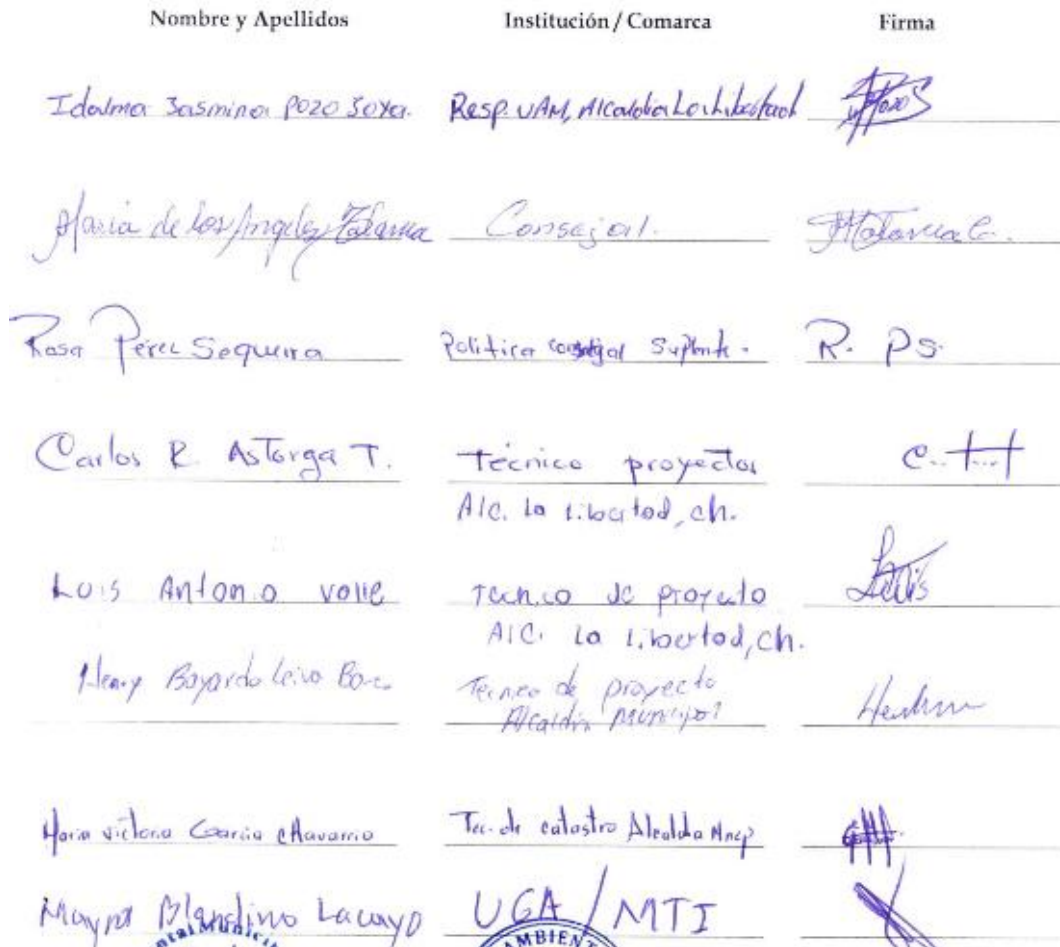 Nombre y Apellidos Institución / Comarca Firma
Idalma Jasmina Pozo Soya. Resp. UAM, Alcaldia La Libertad
Maria de los Angeles Consejal.
Rosa Perez Sequeira Politica consejal Suplente. R. PS.
Carlos R. Astorga T. Técnico proyectos
Alc. la Libertad, ch.
Luis Antonio Valle Tecnico de proyecto Luis
Alc. La Libertad, ch.
Henry Bayardo Leiva Tecnico de proyecto
Alcaldia Municipal
Maria Victoria Garcia chavarria Tec. de catastro Alcaldia
Mayra Blandino Lacayo UGA / MTI
AMBIEN